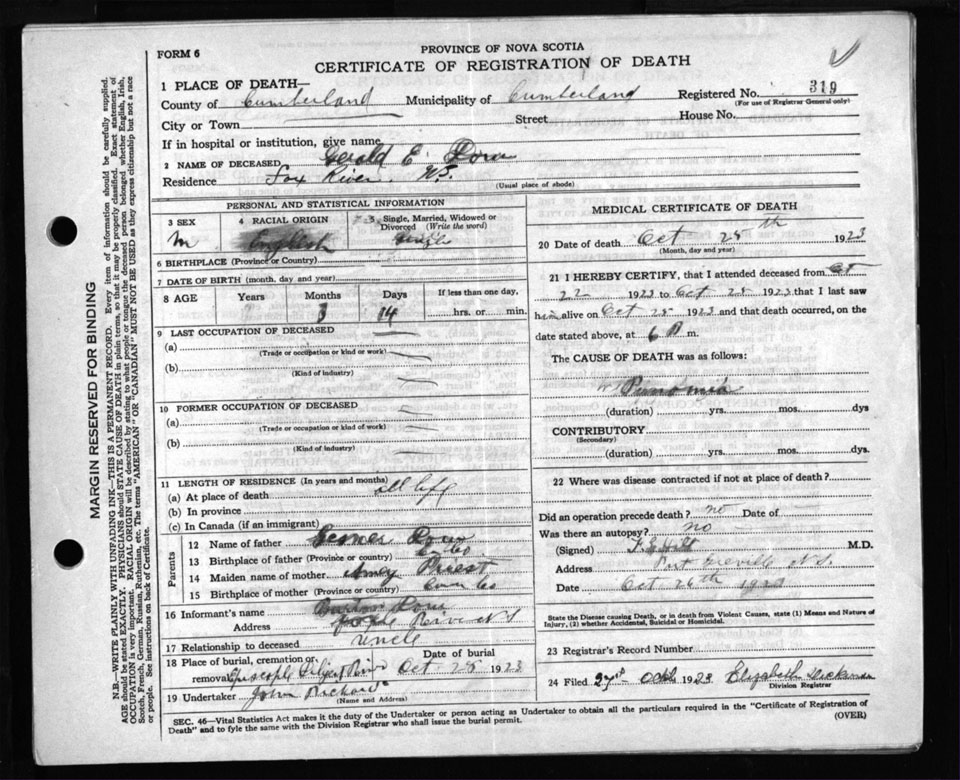 FORM 6
PROVINCE OF NOVA SCOTIA
CERTIFICATE OF REGISTRATION OF DEATH
1 PLACE OF DEATH—
County of Cumberland Municipality of Cumberland Registered No. 319
(For use of Registrar General only)
City or Town Street House No.
If in hospital or institution, give name
2 NAME OF DECEASED Gerald E.
Residence Fox River. N.S.
(Usual place of abode)
PERSONAL AND STATISTICAL INFORMATION
3 SEX 4 RACIAL ORIGIN Single, Married, Widowed or Divorced (Write the word)
M. English Single
6 BIRTHPLACE (Province or Country)
7 DATE OF BIRTH (month, day and year)
8 AGE Years Months Days If less than one day,
3 14 hrs. or min.
9 LAST OCCUPATION OF DECEASED
(a)
(Trade or occupation or kind or work)
(b)
(Kind of industry)
10 FORMER OCCUPATION OF DECEASED
(a)
(Trade or occupation or kind of work)
(b)
(Kind of industry)
11 LENGTH OF RESIDENCE (In years and months)
(a) At place of death all life
(b) In province
(c) In Canada (if an immigrant)
Parents
12 Name of father
13 Birthplace of father (Province or country) Co
14 Maiden name of mother Amey Priest
15 Birthplace of mother (Province or country) Cum Co
16 Informant's name
Address N S
17 Relationship to deceased uncle
18 Place of burial, cremation or removal River Oct 28 1923
19 Undertaker John Richards
(Name and Address)
MEDICAL CERTIFICATE OF DEATH
20 Date of death Oct 25th 1923
(Month, day and year)
21 I HEREBY CERTIFY, that I attended deceased from Oct
22 1923 to Oct 25 1923 that I last saw
him alive on Oct 25 1923 and that death occurred, on the
date stated above, at 6 m.
The CAUSE OF DEATH was as follows:
Punomia
(duration) yrs. mos. dys
CONTRIBUTORY
(Secondary)
(duration) yrs. mos. dys.
22 Where was disease contracted if not at place of death?
Did an operation precede death? no Date of
Was there an autopsy? no
(Signed) M.D.
Address Port Greville N.S.
Date Oct 26th 1923
State the Disease causing Death, or in death from Violent Causes, state (1) Means and Nature of
Injury, (2) whether Accidental, Suicidal or Homicidal.
23 Registrar's Record Number
24 Filed 27th Oct 1923 Elizabeth
Division Registrar
SEC. 46—Vital Statistics Act makes it the duty of the Undertaker or person acting as Undertaker to obtain all the particulars required in the "Certificate of Registration of
Death" and to fyle the same with the Division Registrar who shall issue the burial permit.
(OVER)
MARGIN RESERVED FOR BINDING
N.B.—WRITE PLAINLY WITH UNFADING INK—THIS IS A PERMANENT RECORD. Every item of information should be carefully supplied.
AGE should be stated EXACTLY. PHYSICIANS should STATE CAUSE OF DEATH in plain terms, so that it may be properly classified. Exact statement of
OCCUPATION is very important. RACIAL ORIGIN will be described by stating to what people or tongue the deceased person belonged whether English, Irish,
Scotch, French, German, Russian, Ruthenian, etc. The terms "AMERICAN" OR "CANADIAN" MUST NOT BE USED as they express citizenship but not a race
or people. See instructions on back of Certificate.